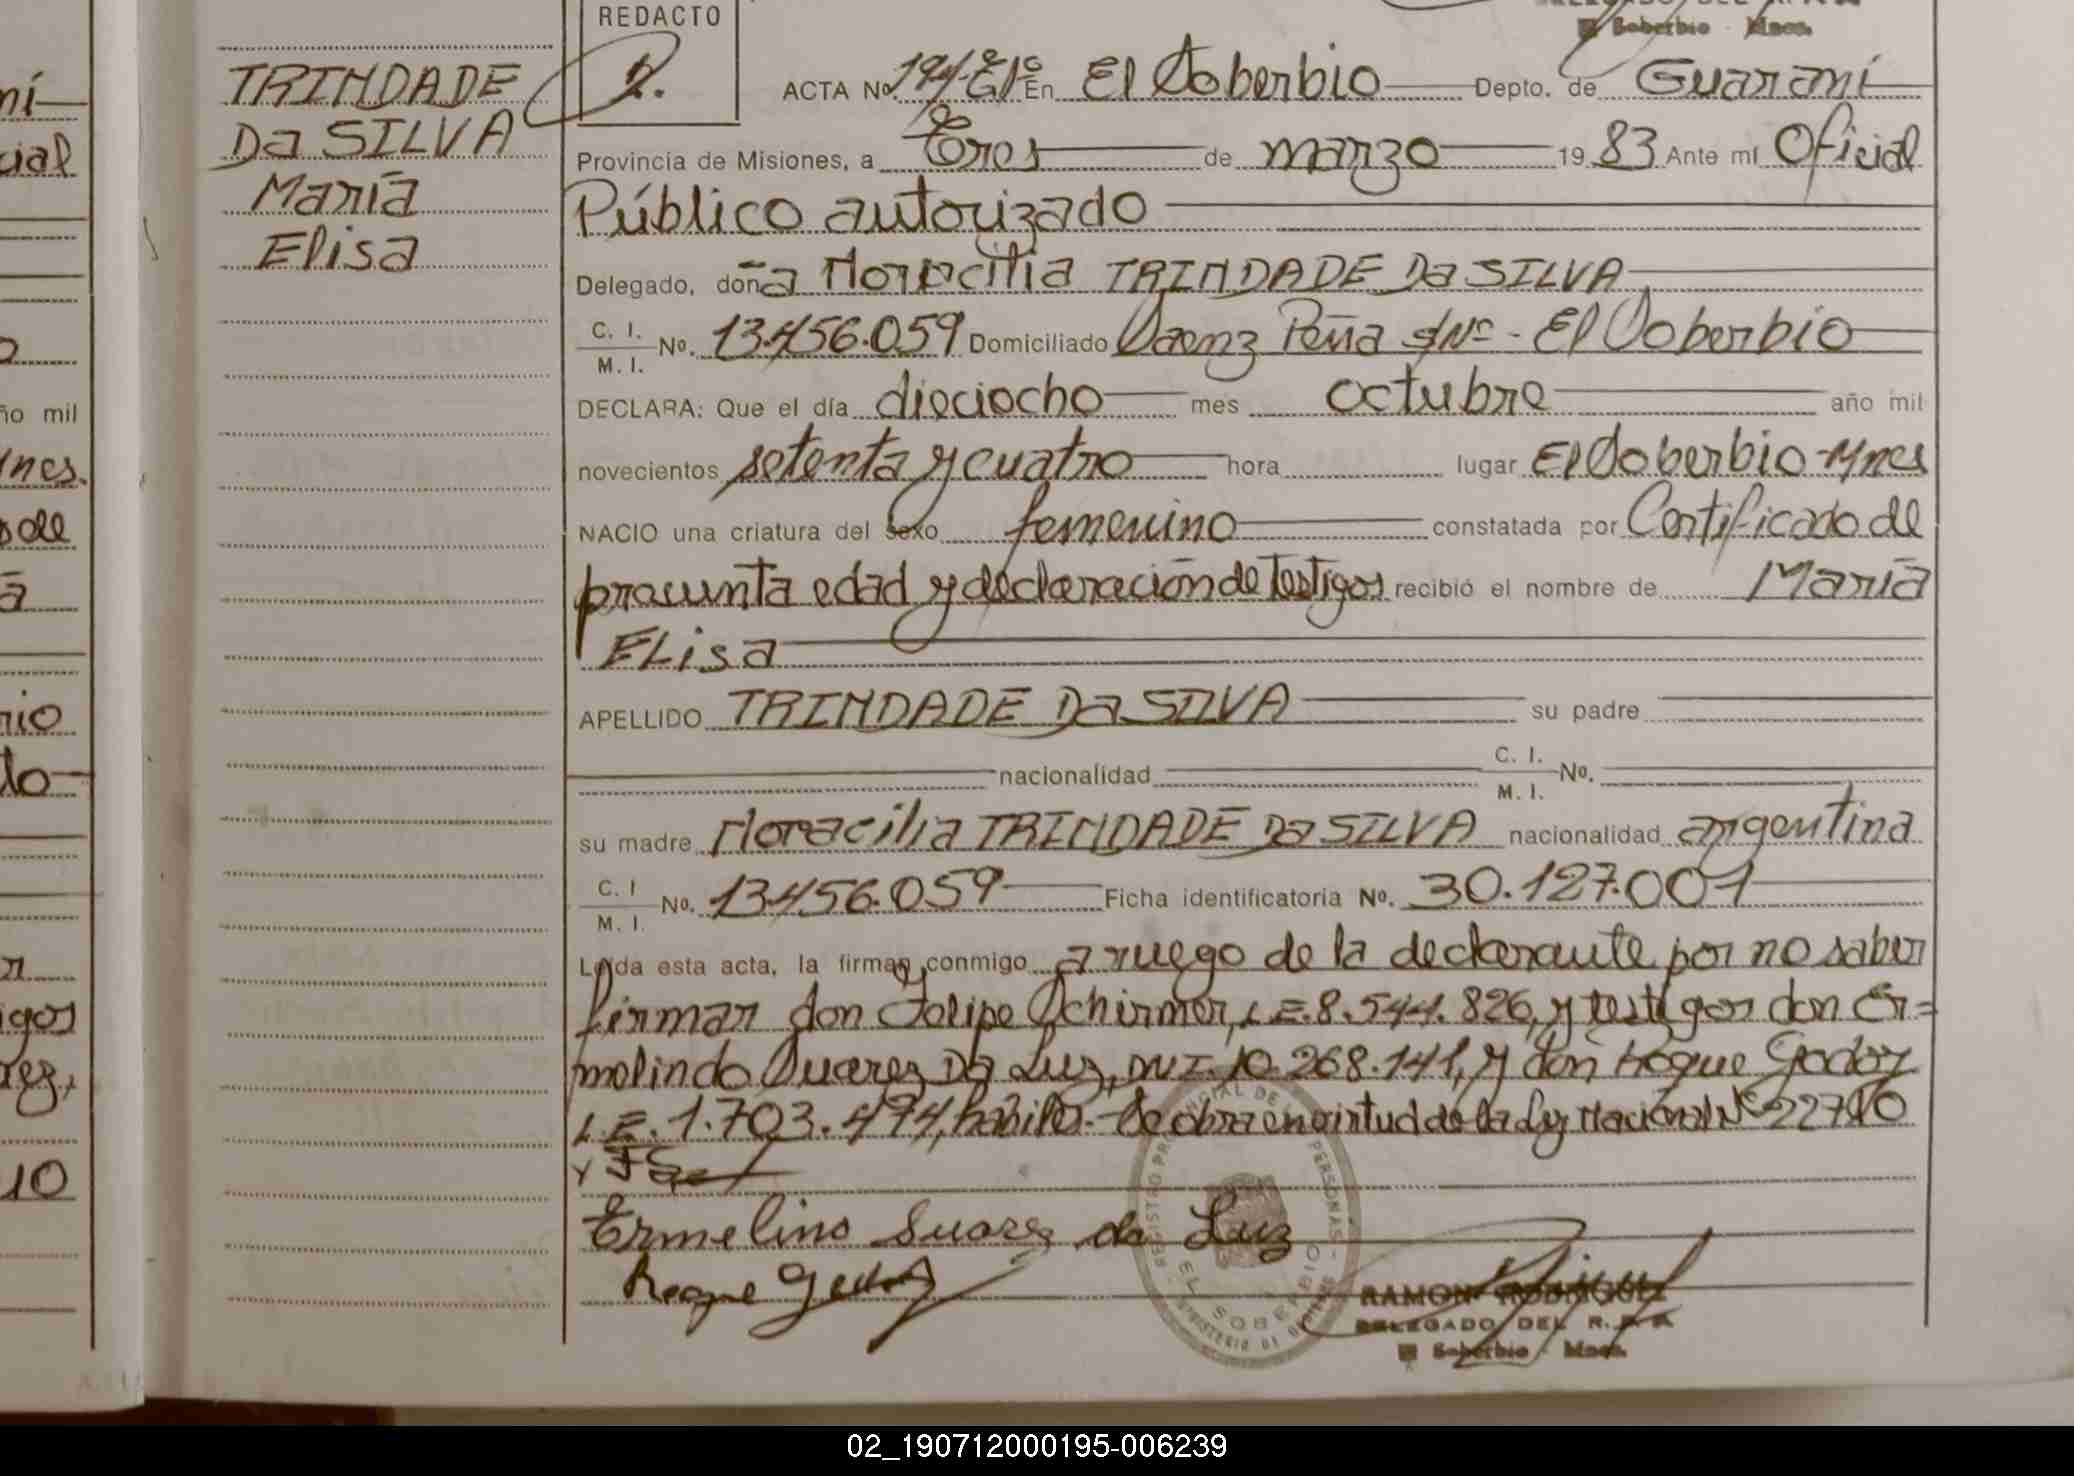 REDACTO
TRINDADE
Da SILVA
María
Elisa
ACTA Nº 194-E1º En El Soberbio Depto. de Guaraní
Provincia de Misiones, a Tres de marzo 19 83 Ante mí Oficial
Público autorizado
Delegado, doña Noracilia TRINDADE Da SILVA
C. I.
M. I.
No. 13.456.059 Domiciliado Saenz Peña s/Nº - El Soberbio
DECLARA: Que el día dieciocho mes octubre año mil
novecientos setenta y cuatro hora lugar El Soberbio-Mnes
NACIO una criatura del sexo femenino constatada por Certificado de
presunta edad y declaración de Testigos recibió el nombre de María
ELisa
APELLIDO TRINDADE Da SILVA su padre
nacionalidad C. I. M. I. No.
su madre Noracilia TRINDADE Da SILVA nacionalidad argentina
C. I
M. I.
No. 13.456.059 Ficha identificatoria No. 30.127.001
Leída esta acta, la firman conmigo a ruego de la declarante por no saber
firmar don Felipe Schirmer, L.E. 8.544.826, y testigos don Er=
melindo Suarez Da Luz, DNI. 10.268.141, y don Roque Godoy
L.E. 1.703.494, hábiles.- Se obra en virtud de la Ley Nacional Nº 22710
Ermelino Suarez da Luz
Roque Godoy
REGISTRO PROVINCIAL DE LAS PERSONAS
EL SOBERBIO
RAMON RODRIGUEZ
DELEGADO DEL R. P. P.
El Soberbio - Mnes.
ní
cial
ño mil
Mnes.
rio
do
igos
rez,
10
02_190712000195-006239